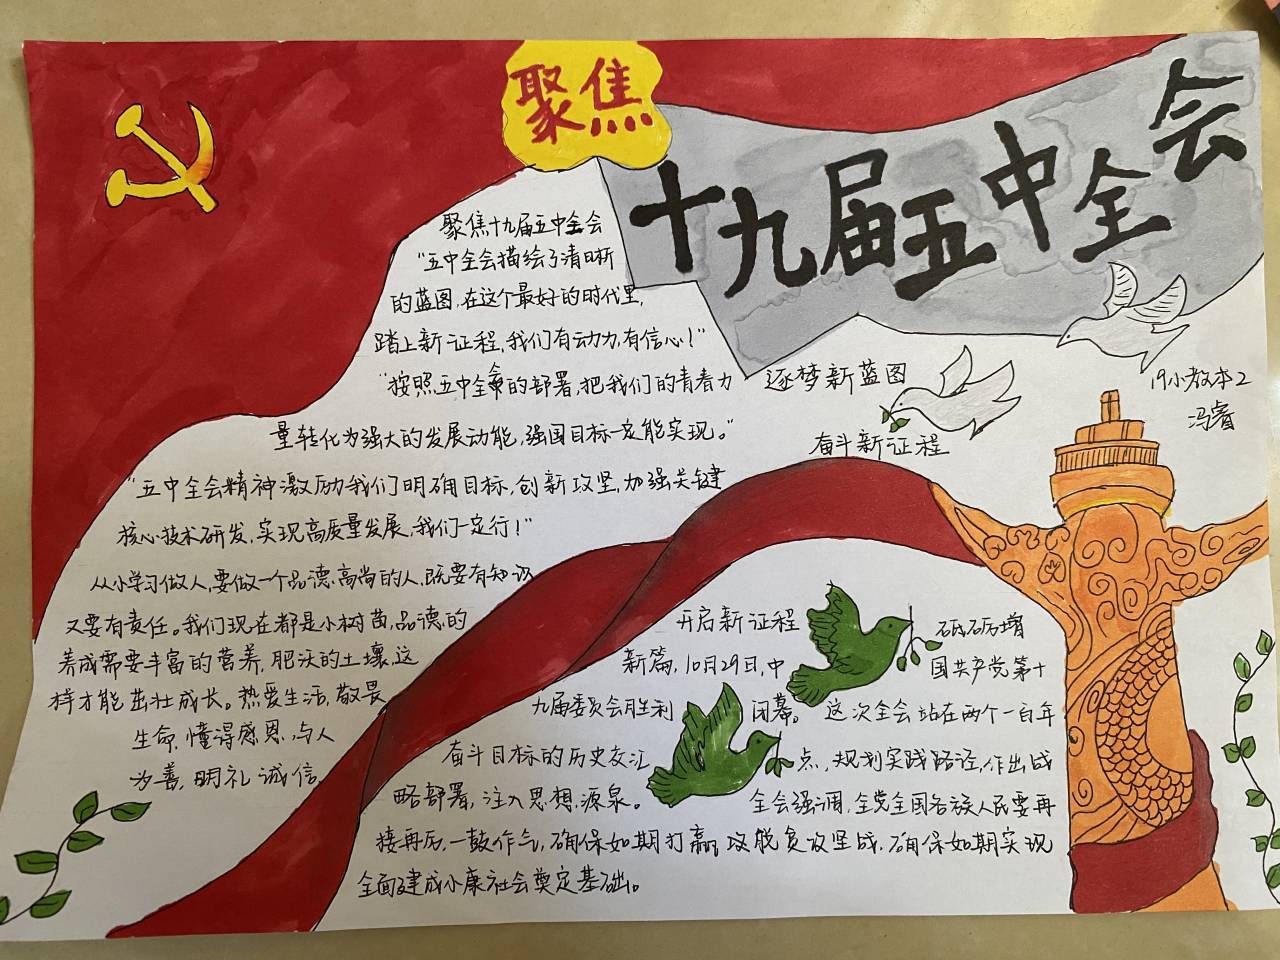 聚焦
十九届五中全会
聚焦十九届五中全会
“五中全会描绘了清晰
的蓝图,在这个最好的时代里,
踏上新征程,我们有动力,有信心!”
“按照五中全会的部署,把我们的青春力
量转化为强大的发展动能,强国目标一定能实现。”
“五中全会精神激励我们明确目标,创新攻坚,加强关键
核心技术研发,实现高质量发展,我们一定行!”
从小学习做人,要做一个品德高尚的人,既要有知识
又要有责任。我们现在都是小树苗,品德的
养成需要丰富的营养,肥沃的土壤,这
样才能茁壮成长。热爱生活,敬畏
生命,懂得感恩,与人
为善,明礼诚信。
逐梦新蓝图
奋斗新征程
19小教本2
冯睿
开启新征程 砥砺增
新篇,10月29日,中 国共产党第十
九届委员会胜利 闭幕。 这次全会站在两个一百年
奋斗目标的历史交汇 点,规划实践路径,作出战
略部署,注入思想源泉。 全会强调,全党全国各族人民要再
接再厉,一鼓作气,确保如期打赢攻脱贫攻坚战,确保如期实现
全面建成小康社会奠定基础。